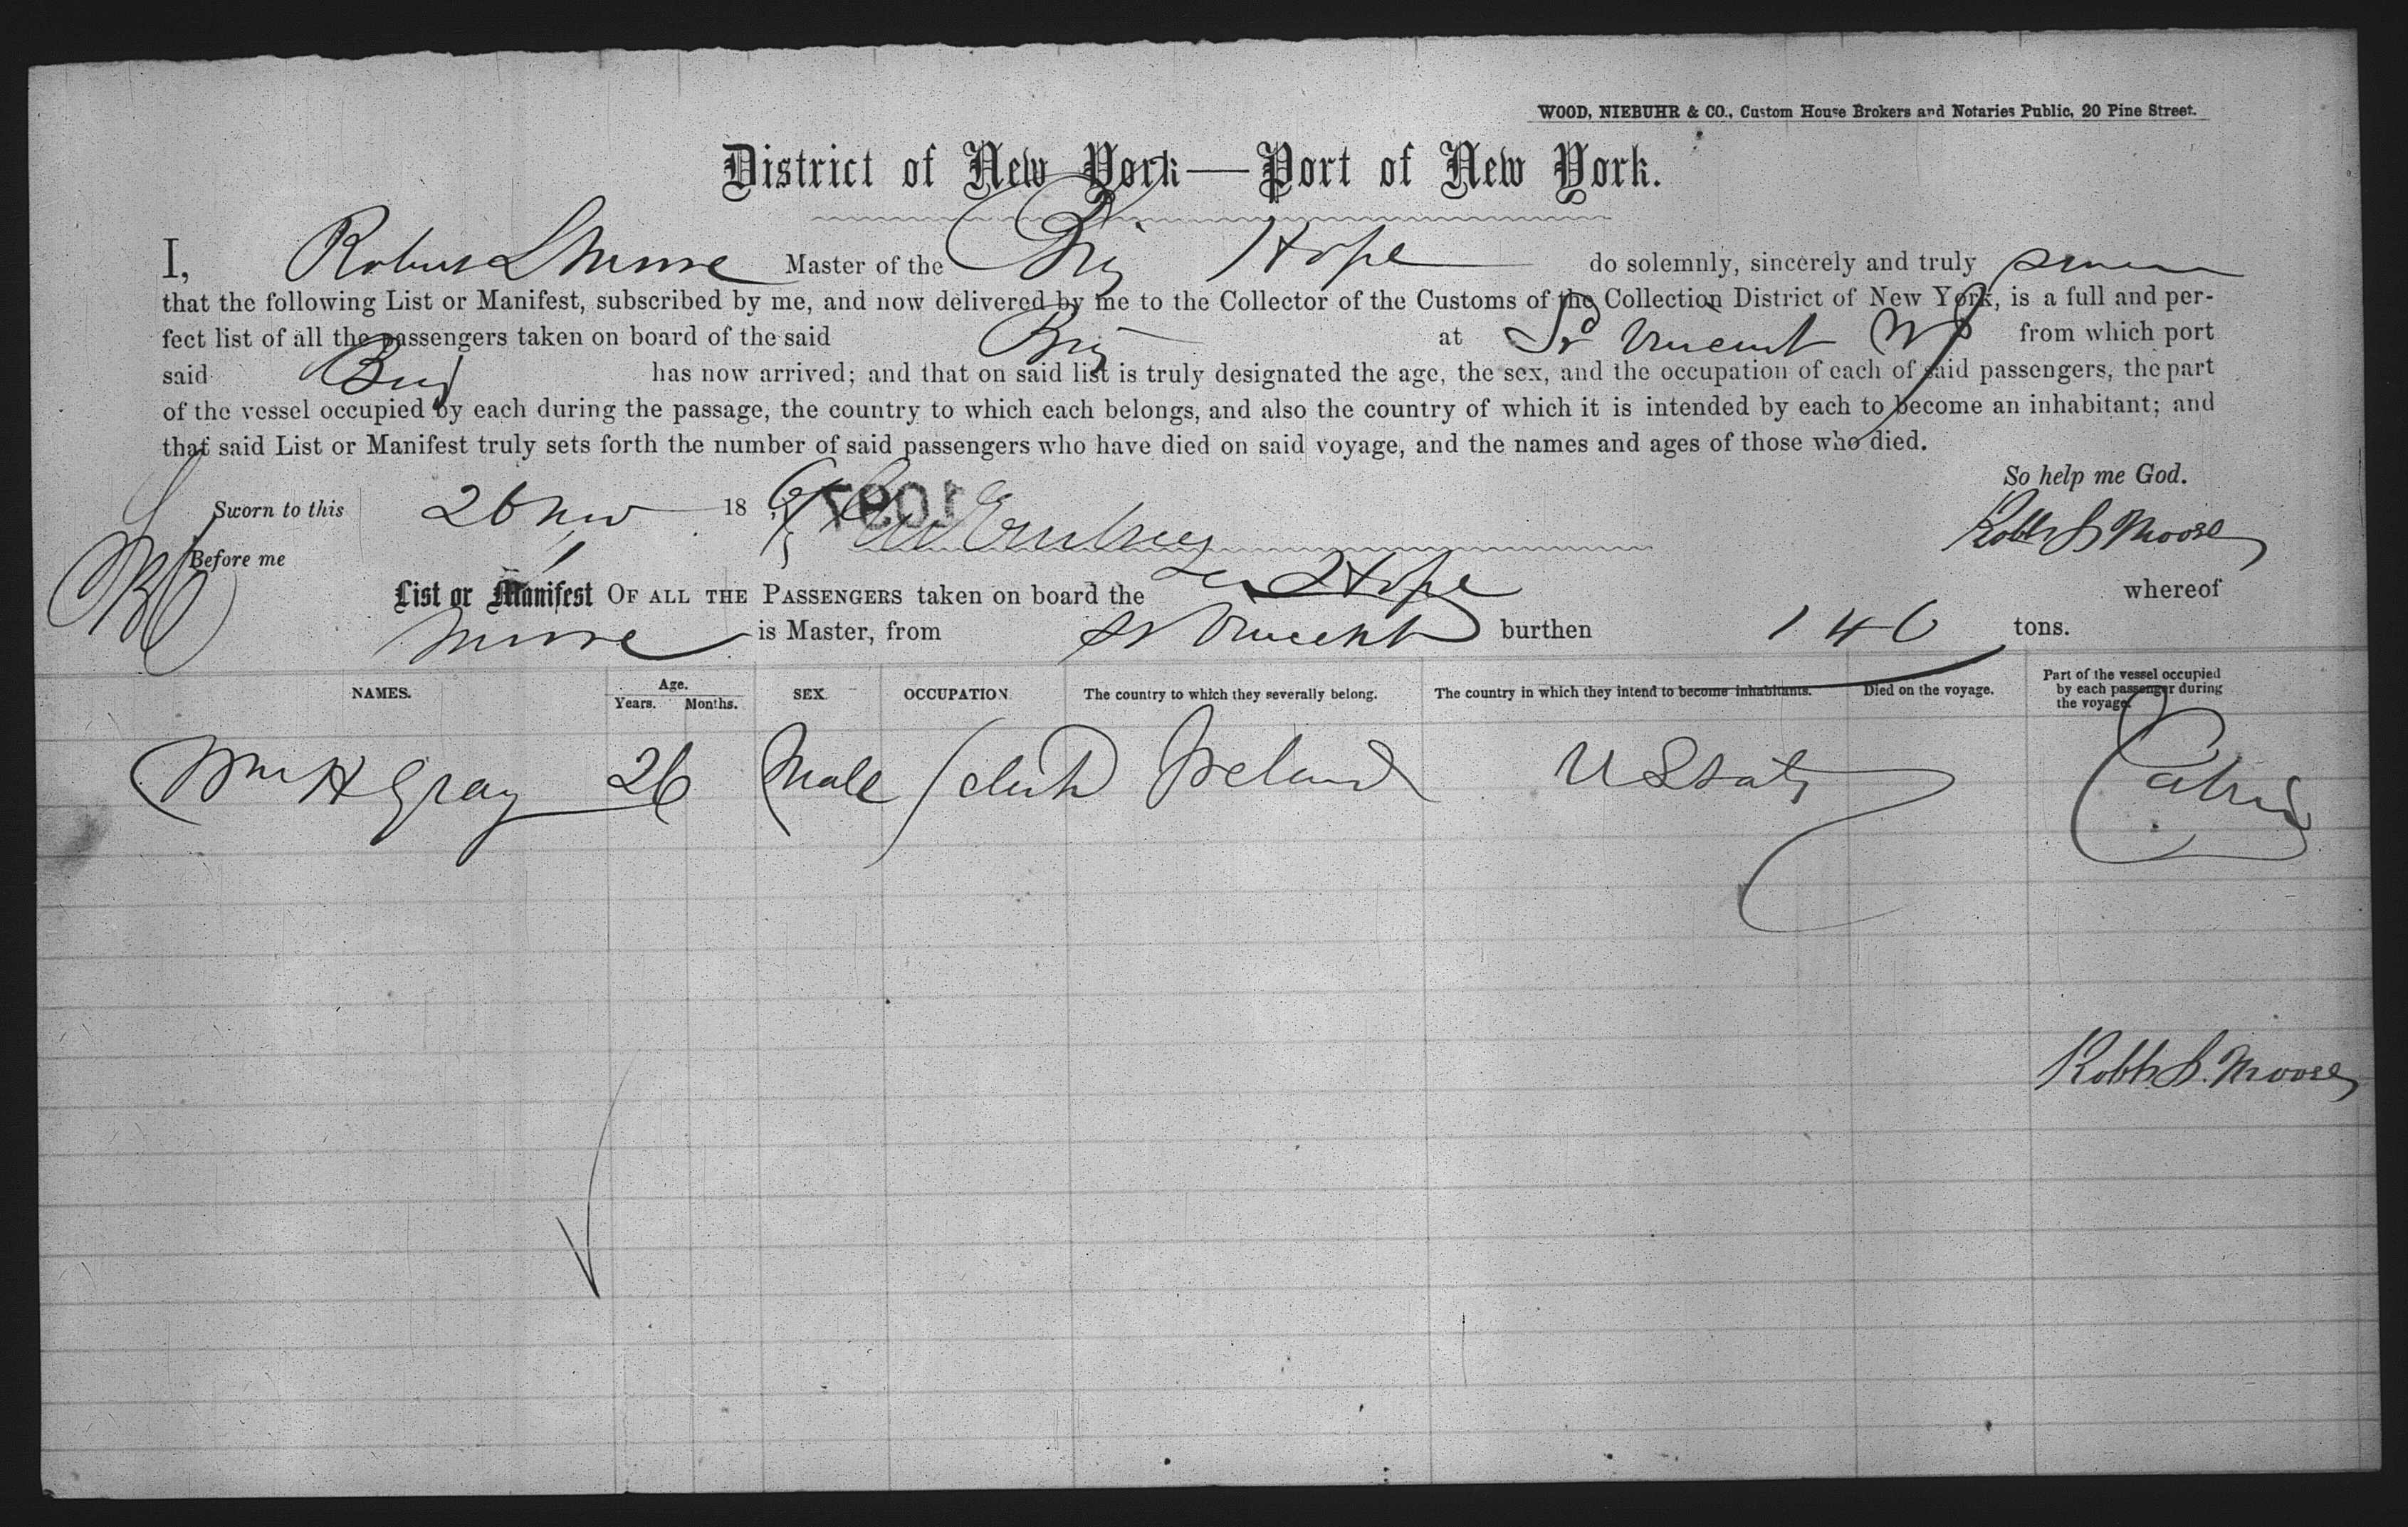 WOOD, NIEBUHR & CO., Custom House Brokers and Notaries Public, 20 Pine Street.
District of New York—Port of New York.
I, Robert L Moore Master of the Brig Hope do solemnly, sincerely and truly swear
that the following List or Manifest, subscribed by me, and now delivered by me to the Collector of the Customs of the Collection District of New York, is a full and per-
fect list of all the passengers taken on board of the said Brig at St Vincent from which port
said Brig has now arrived; and that on said list is truly designated the age, the sex, and the occupation of each of said passengers, the part
of the vessel occupied by each during the passage, the country to which each belongs, and also the country of which it is intended by each to become an inhabitant; and
that said List or Manifest truly sets forth the number of said passengers who have died on said voyage, and the names and ages of those who died.
So help me God.
Sworn to this 26 Nov 186 1097
Robt L Moore
Before me
List or Manifest OF ALL THE PASSENGERS taken on board the Hope whereof
Moore is Master, from St Vincent burthen 146 tons.
NAMES. Age. Years. Months. SEX. OCCUPATION. The country to which they severally belong. The country in which they intend to become inhabitants. Died on the voyage. Part of the vessel occupied by each passenger during the voyage.
Wm H Gray 26 Male Clerk Ireland U States Cabin
Robt L. Moore